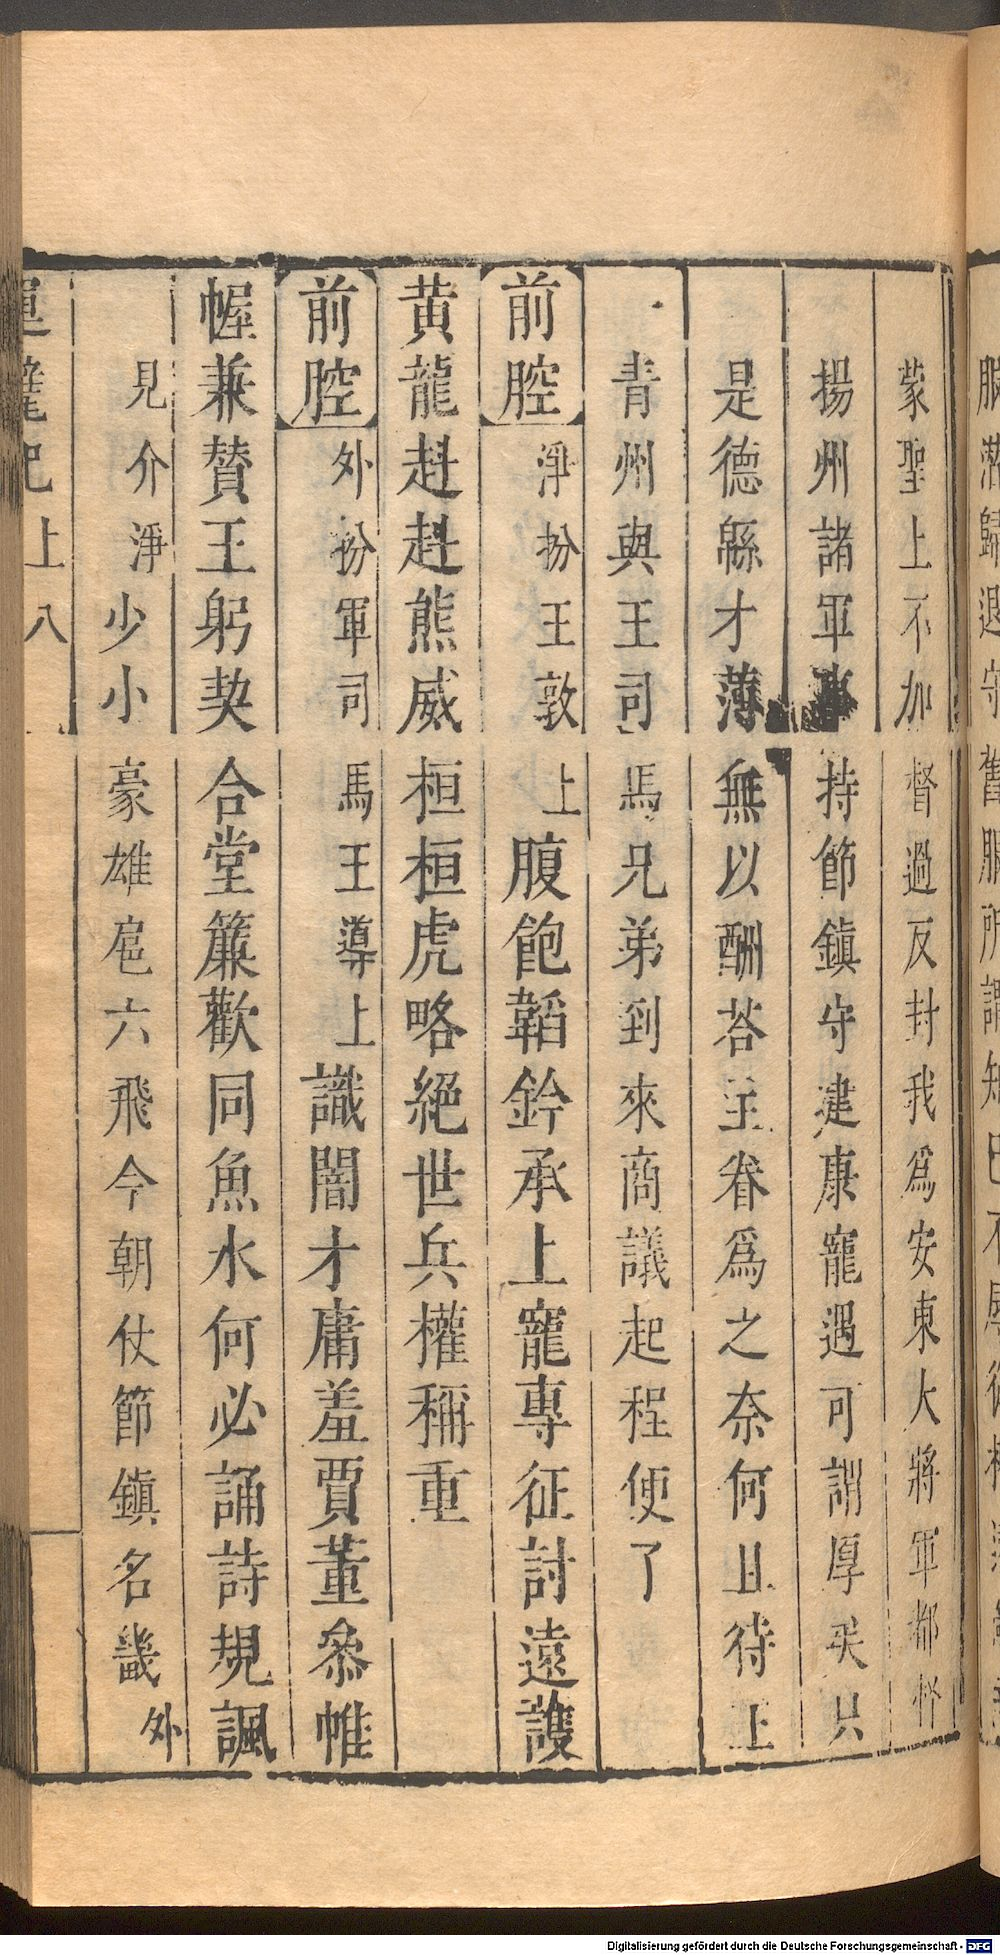 蒙聖上不加督過反封我爲安東大將軍都督
揚州諸軍事持節鎮守建康寵遇可謂厚矣只
是德緜才薄無以酬荅主眷爲之奈何且待上
青州與王司馬兄弟到來商議起程便了
前腔 淨扮王敦上 腹飽韜鈐承上寵專征討遠謢
黃龍赳赳熊威桓桓虎略絕世兵權稱重
前腔 外扮軍司馬王導上 識闇才庸羞賈董叅帷
幄兼贊王躬契合堂簾歡同魚水何必誦詩規諷
見介淨少小豪雄扈六飛今朝仗節鎮名畿外
運甓記 上 八
Digitalisierung gefördert durch die Deutsche Forschungsgemeinschaft - DFG